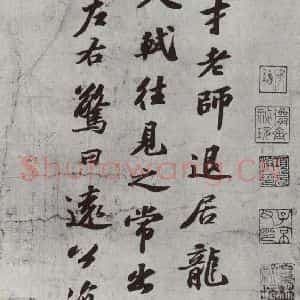 才老師退居龍
入軾往見之常出
左右驚曰遠公
Shufawang.CN